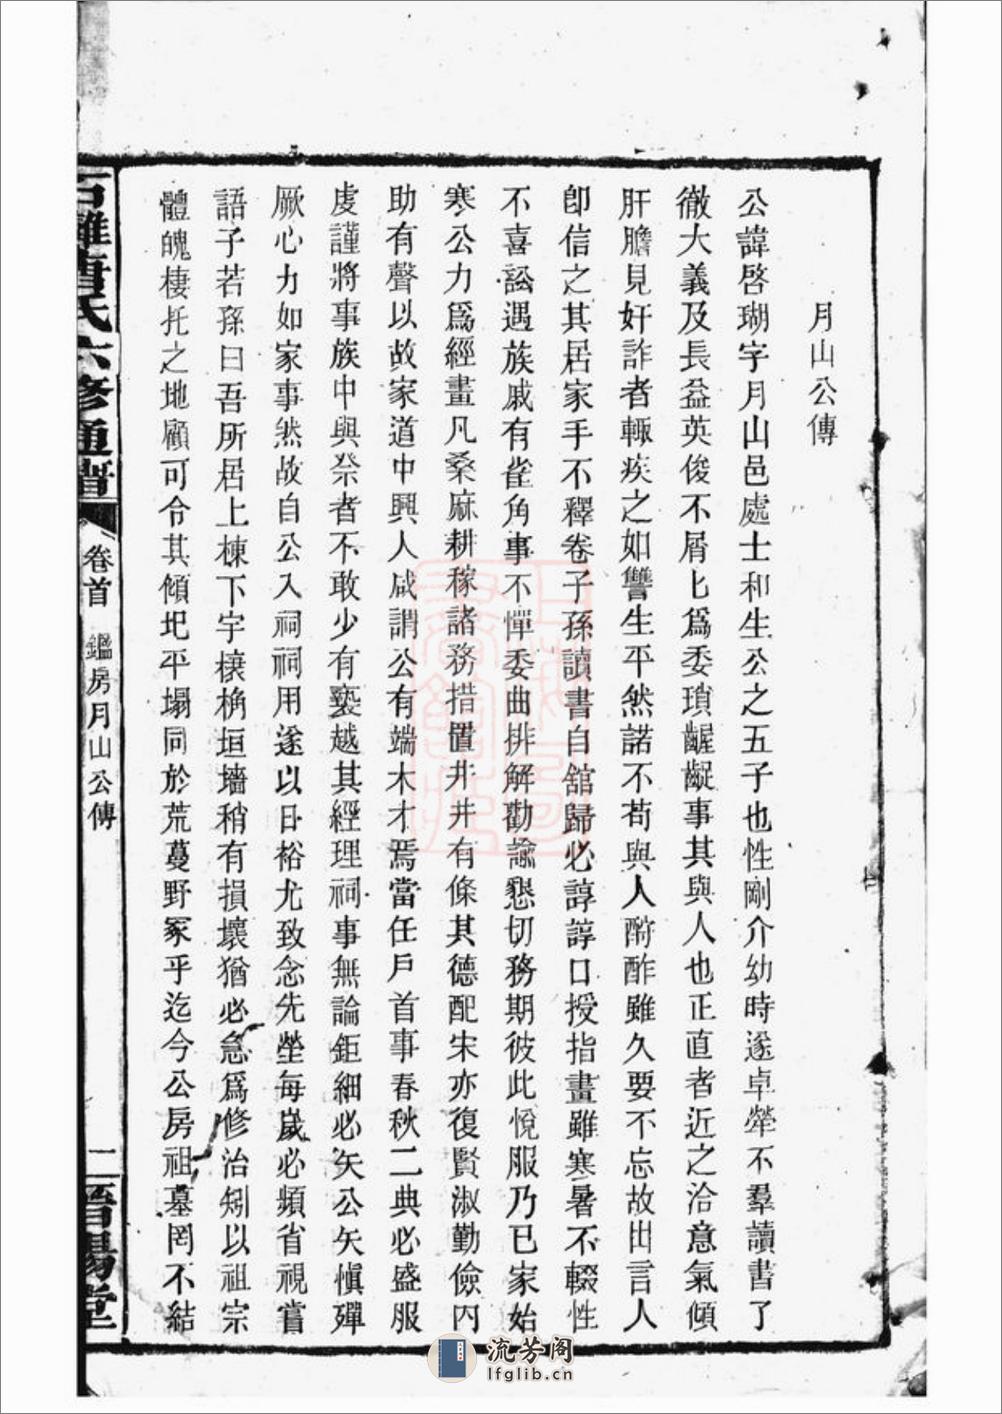 月山公傳
公諱啓瑚字月山邑處士和生公之五子也性剛介幼時遂卓犖不羣讀書了
徹大義及長益英俊不屑匕爲委瑣齷齪事其與人也正直者近之洽意氣傾
肝膽見奸詐者輙疾之如讐生平然諾不苟與人酧酢雖久要不忘故出言人
卽信之其居家手不釋卷子孫讀書自舘歸必諄諄口授指畫雖寒暑不輟性
不喜訟遇族戚有雀角事不憚委曲排解勸諭懇切務期彼此悅服乃已家始
寒公力爲經畫凡桑麻耕稼諸務措置井井有條其德配宋亦復賢淑勤儉內
助有聲以故家道中興人咸謂公有端木才焉當任戶首事春秋二典必盛服
虔謹將事族中與祭者不敢少有褻越其經理祠事無論鉅細必矢公矢愼殫
厥心力如家事然故自公入祠祠用遂以日裕尤致念先塋每歲必頻省視嘗
語子若孫曰吾所居上棟下宇榱桷垣墻稍有損壞猶必急爲修治矧以祖宗
體魄棲托之地顧可令其傾圯平塌同於荒蔓野冢乎迄今公房祖墓罔不結
唐氏六修通譜
卷首
鑑房月山公傳
二
晋陽堂
流芳阁
lfglib.cn